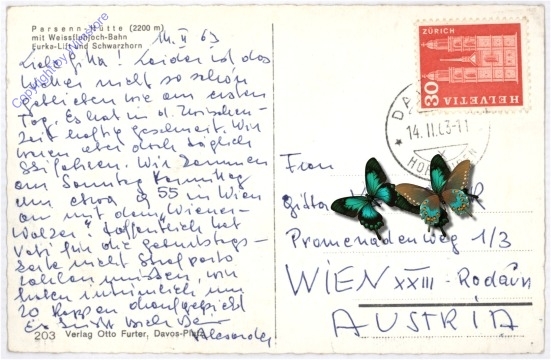 Parsenn-Hütte (2200 m)
mit Weissfluhjoch-Bahn
Furka-Lift und Schwarzhorn
Copyright by
14. II 63
Liebe Gitta! Leider ist das
Wetter nicht so schön
geblieben wie am ersten
Tag. Es hat in d. Zwischen-
zeit heftig geschneit. Wir
waren aber doch täglich
Schifahren. Wir kommen
am Sonntag
um etwa 9 55 in Wien
an mit dem "Wiener-
Walzer". Hoffentlich hat
Vati für die Geburtstags-
karte nicht Strafporto
zahlen müssen, wir
hatten irrtümlich um
20 Rappen draufgepickt
Es grüßt Dich
Alexander
203 Verlag Otto Furter, Davos-Platz
ZÜRICH
30
HELVETIA
DAVOS
14. II. 63-11
Frau
Gitta
Promenadenweg 1/3
WIEN XXIII - Rodaun
AUSTRIA